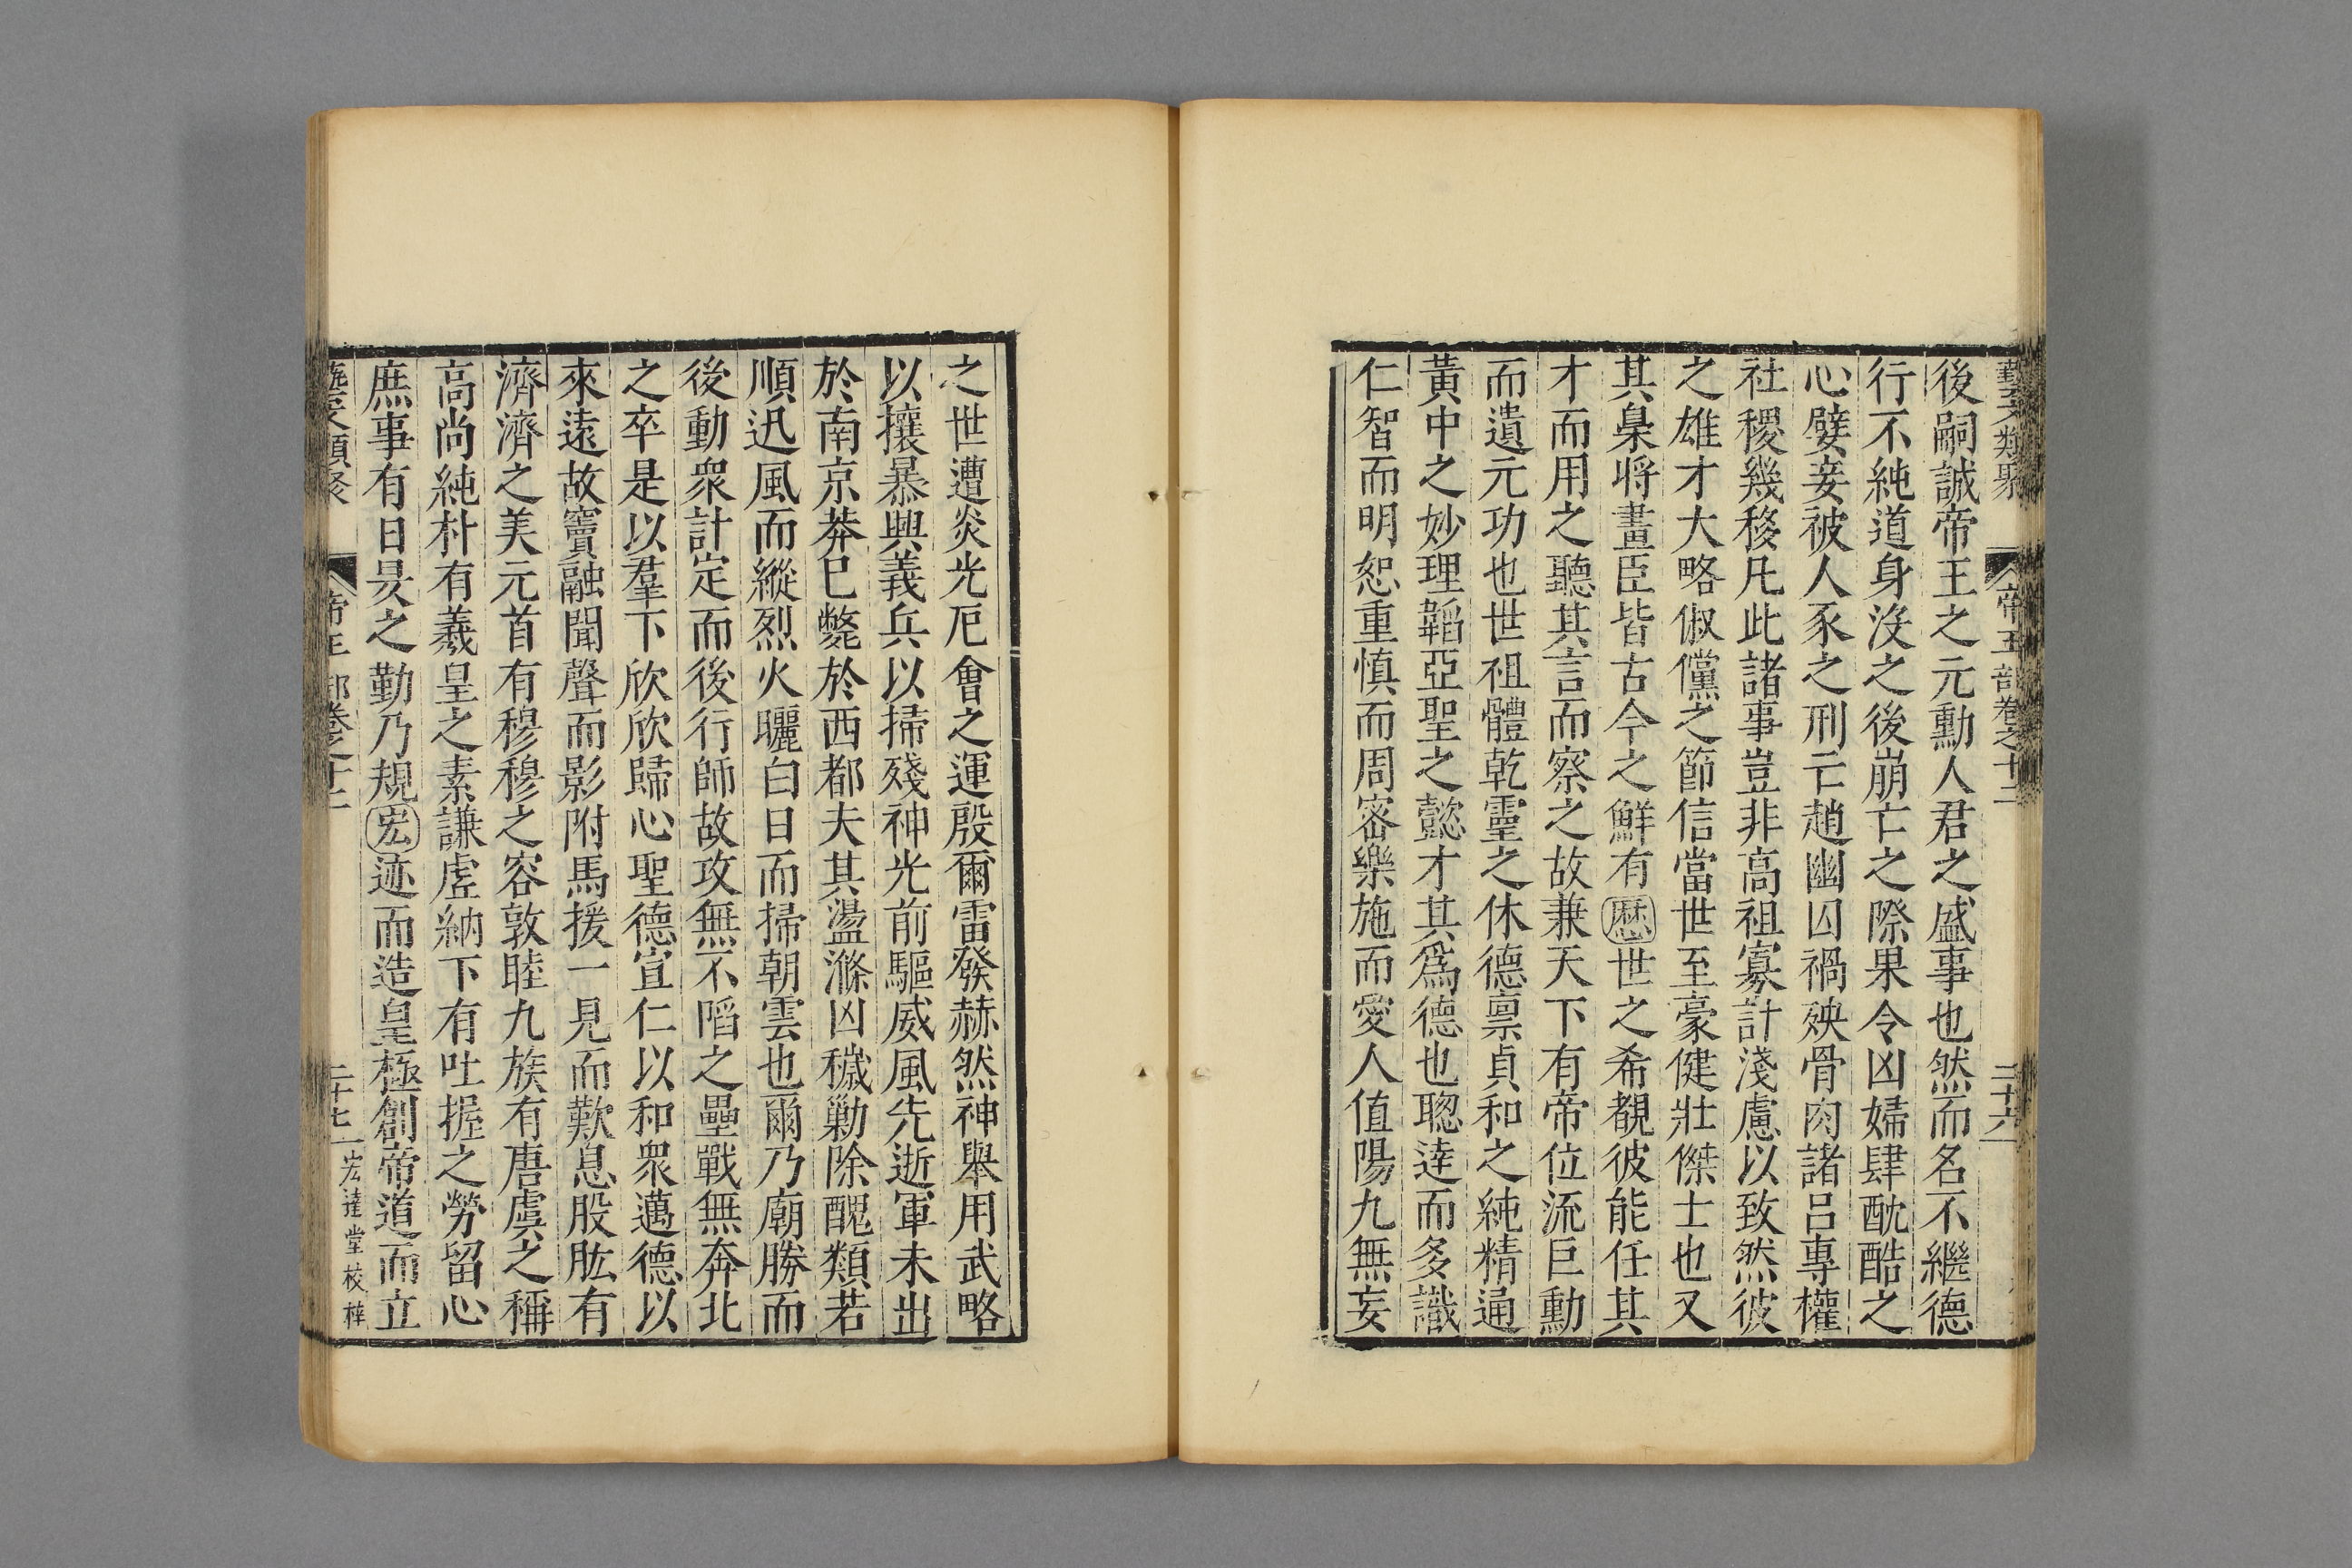 藝文類聚 帝王部卷之十二 二十六
後嗣誠帝王之元勳人君之盛事也然而名不繼德
行不純道身沒之後崩亡之際果令凶婦肆酖酷之
心嬖妾被人豕之刑亡趙幽囚禍殃骨肉諸呂專權
社稷幾移凡此諸事豈非高祖寡計淺慮以致然彼
之雄才大略俶儻之節信當世至豪健壯傑士也又
其梟將畫臣皆古今之鮮有歷世之希覩彼能任其
才而用之聽其言而察之故兼天下有帝位流巨勳
而遺元功也世祖體乾靈之休德禀貞和之純精通
黃中之妙理韜亞聖之懿才其爲德也聰達而多識
仁智而明恕重慎而周密樂施而愛人值陽九無妄
之世遭炎光厄會之運殷爾雷發赫然神舉用武略
以攘暴興義兵以掃殘神光前驅威風先逝軍未出
於南京莽已斃於西都夫其盪滌凶穢勦除醜類若
順迅風而縱烈火曬白日而掃朝雲也爾乃廟勝而
後動衆計定而後行師故攻無不陷之壘戰無奔北
之卒是以羣下欣欣歸心聖德宣仁以和衆邁德以
來遠故竇融聞聲而影附馬援一見而歎息股肱有
濟濟之美元首有穆穆之容敦睦九族有唐虞之稱
高尚純朴有羲皇之素謙虛納下有吐握之勞留心
庶事有日昃之勤乃規宏迹而造皇極創帝道而立
藝文類聚 帝王部卷之十二 二十七 宏達堂校梓